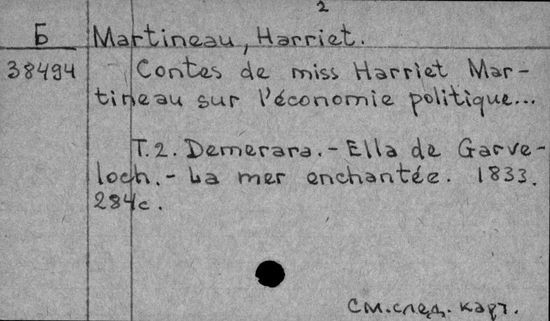 2
Б Martineau, Harriet.
38494 Contes de miss Harriet Mar-
tineau sur l'économie politique...
T.2. Demerara.- Ella de Garve-
loch.- La mer enchantée. 1833.
284c.
См.след. карт.